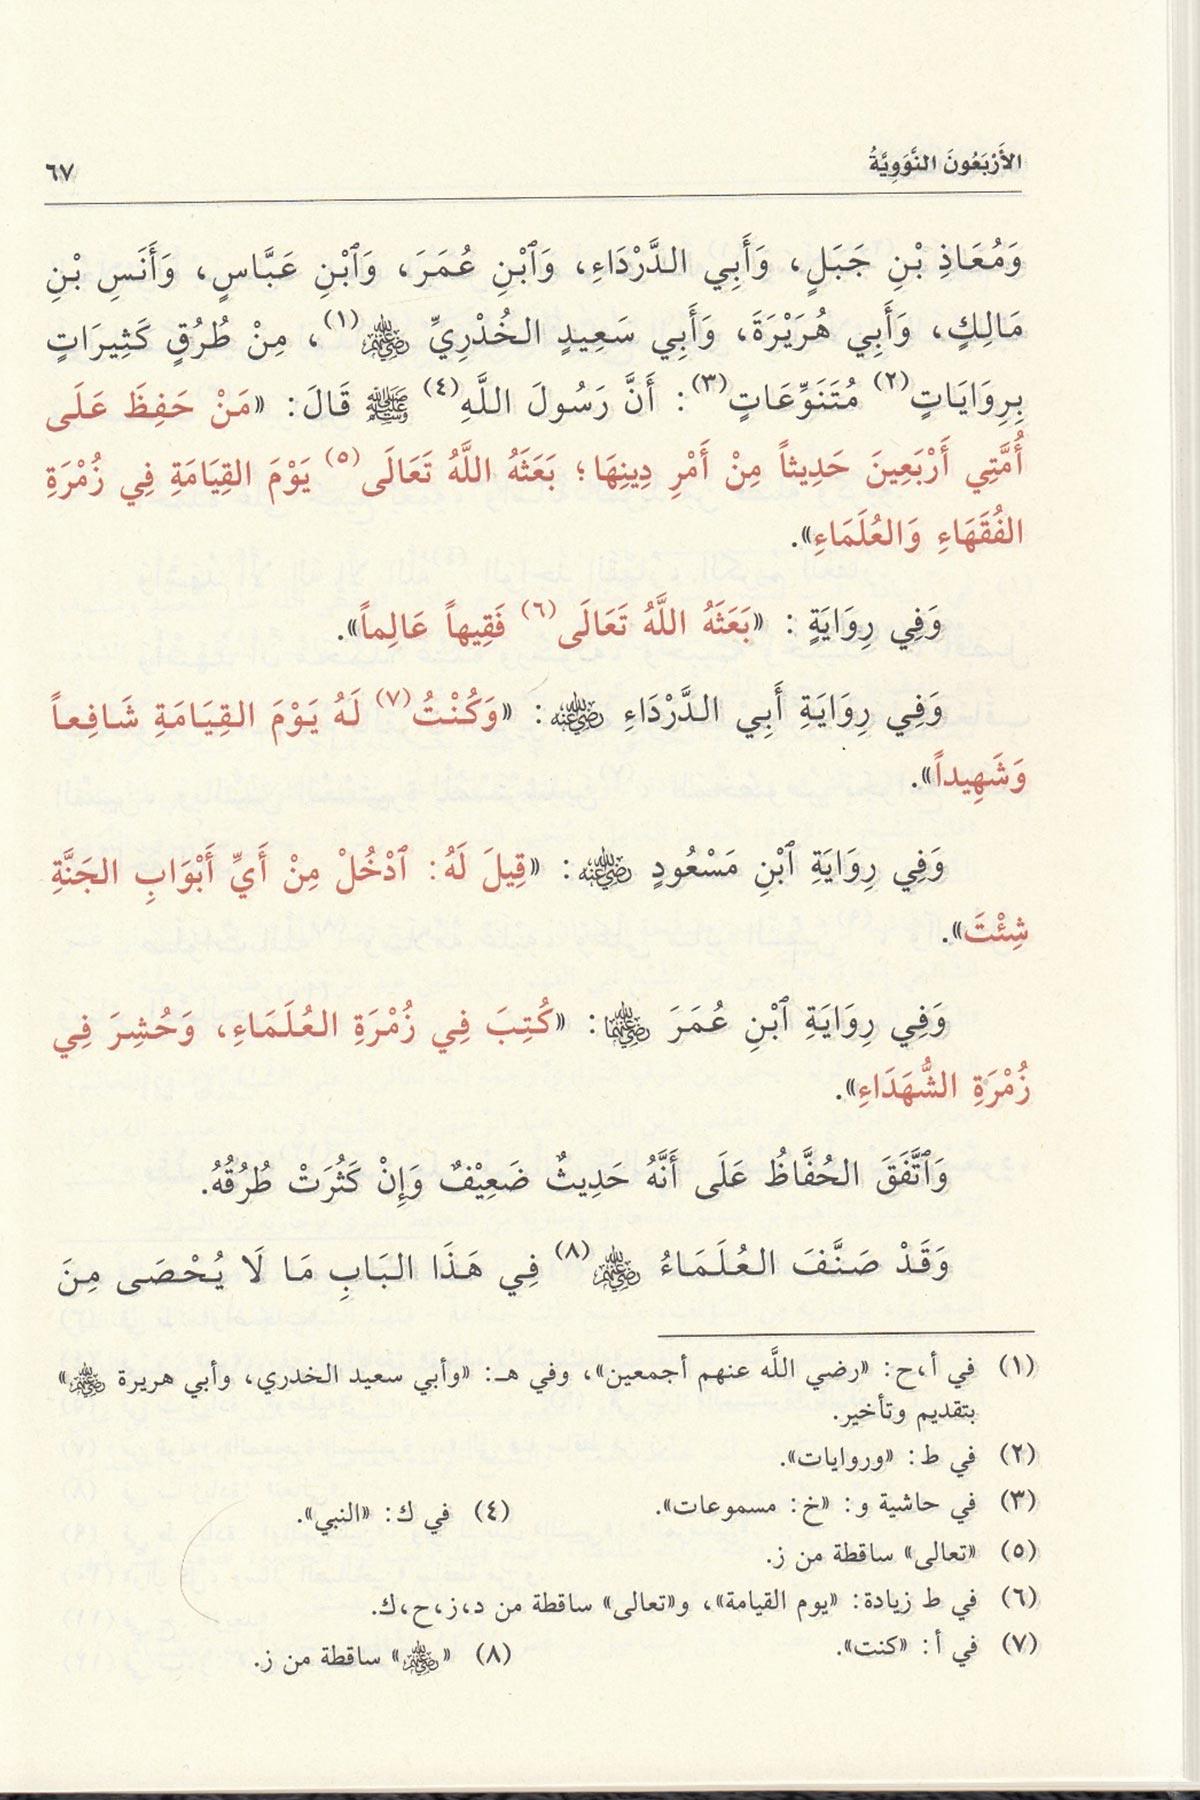 الأَرْبَعُونَ النَّوَوِيَّةُ ٦٧
وَمُعَاذِ بْنِ جَبَلٍ، وَأَبِي الدَّرْدَاءِ، وَٱبْنِ عُمَرَ، وَٱبْنِ عَبَّاسٍ، وَأَنَسِ بْنِ
مَالِكٍ، وَأَبِي هُرَيْرَةَ، وَأَبِي سَعِيدٍ الخُدْرِيِّ رضي الله عنهم(١)، مِنْ طُرُقٍ كَثِيرَاتٍ
بِرِوَايَاتٍ(٢) مُتَنَوِّعَاتٍ(٣): أَنَّ رَسُولَ اللَّهِ(٤) ﷺ قَالَ: «مَنْ حَفِظَ عَلَى
أُمَّتِي أَرْبَعِينَ حَدِيثاً مِنْ أَمْرِ دِينِهَا؛ بَعَثَهُ اللَّهُ تَعَالَى(٥) يَوْمَ القِيَامَةِ فِي زُمْرَةِ
الفُقَهَاءِ وَالعُلَمَاءِ».
وَفِي رِوَايَةٍ: «بَعَثَهُ اللَّهُ تَعَالَى(٦) فَقِيهاً عَالِماً».
وَفِي رِوَايَةِ أَبِي الدَّرْدَاءِ رضي الله عنه: «وَكُنْتُ(٧) لَهُ يَوْمَ القِيَامَةِ شَافِعاً
وَشَهِيداً».
وَفِي رِوَايَةِ ٱبْنِ مَسْعُودٍ رضي الله عنه: «قِيلَ لَهُ: ٱدْخُلْ مِنْ أَيِّ أَبْوَابِ الجَنَّةِ
شِئْتَ».
وَفِي رِوَايَةِ ٱبْنِ عُمَرَ رضي الله عنهما: «كُتِبَ فِي زُمْرَةِ العُلَمَاءِ، وَحُشِرَ فِي
زُمْرَةِ الشُّهَدَاءِ».
وَٱتَّفَقَ الحُفَّاظُ عَلَى أَنَّهُ حَدِيثٌ ضَعِيْفٌ وَإِنْ كَثُرَتْ طُرُقُهُ.
وَقَدْ صَنَّفَ العُلَمَاءُ رضي الله عنهم(٨) فِي هَذَا البَابِ مَا لَا يُحْصَى مِنَ
(١) في أ،ح: «رضي اللَّه عنهم أجمعين»، وفي هـ: «وأبي سعيد الخدري، وأبي هريرة رضي الله عنهم»
بتقديم وتأخير.
(٢) في ط: «وروايات».
(٣) في حاشية و: «خ: مسموعات». (٤) في ك: «النبي».
(٥) «تعالى» ساقطة من ز.
(٦) في ط زيادة: «يوم القيامة»، و«تعالى» ساقطة من د،ز،ح،ك.
(٧) في أ: «كنت». (٨) «رضي الله عنهم» ساقطة من ز.